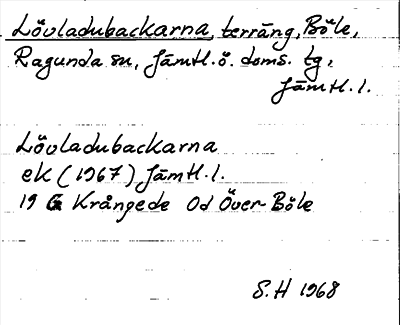 Lövladubackarna, terräng, Böle,
Ragunda sn, Jämtl.ö. doms. tg,
Jämtl. l.
Lövladubackarna
ek (1967) Jämtl. l.
19 G Krångede Od Över-Böle
S.H 1968